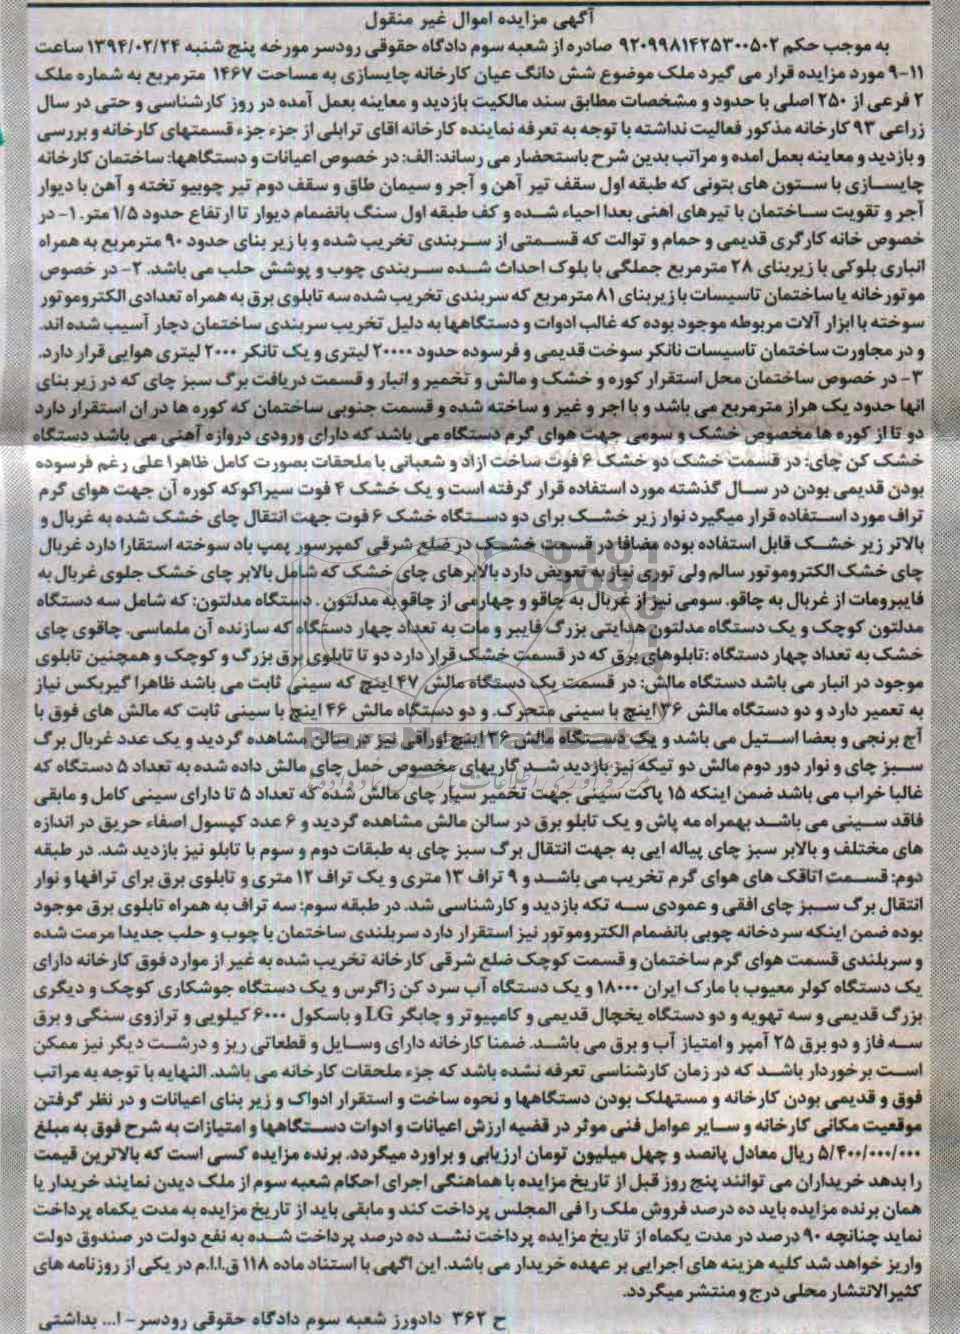 آگهی مزایده اموال غیر منقول
به موجب حکم ۹۲۰۹۹۸۱۴۲۵۳۰۰۵۰۲ صادره از شعبه سوم دادگاه حقوقی رودسر مورخه پنج شنبه ۱۳۹۴/۰۲/۲۴ ساعت
۹-۱۱ مورد مزایده قرار می گیرد ملک موضوع شش دانگ عیان کارخانه چایسازی به مساحت ۱۴۶۷ مترمربع به شماره ملک
۲ فرعی از ۲۵۰ اصلی با حدود و مشخصات مطابق سند مالکیت بازدید و معاینه بعمل آمده در روز کارشناسی و حتی در سال
زراعی ۹۳ کارخانه مذکور فعالیت نداشته با توجه به تعرفه نماینده کارخانه اقای ترابلی از جزء جزء قسمتهای کارخانه و بررسی
و بازدید و معاینه بعمل امده و مراتب بدین شرح باستحضار می رساند: الف: در خصوص اعیانات و دستگاهها: ساختمان کارخانه
چایسازی با ستون های بتونی که طبقه اول سقف تیر آهن و آجر و سیمان طاق و سقف دوم تیر چوبیو تخته و آهن با دیوار
آجر و تقویت ساختمان با تیرهای اهنی بعدا احیاء شده و کف طبقه اول سنگ بانضمام دیوار تا ارتفاع حدود ۱/۵ متر. ۱- در
خصوص خانه کارگری قدیمی و حمام و توالت که قسمتی از سربندی تخریب شده و با زیر بنای حدود ۹۰ مترمربع به همراه
انباری بلوکی با زیربنای ۲۸ مترمربع جملگی با بلوک احداث شده سربندی چوب و پوشش حلب می باشد. ۲- در خصوص
موتورخانه یا ساختمان تاسیسات با زیربنای ۸۱ مترمربع که سربندی تخریب شده سه تابلوی برق به همراه تعدادی الکتروموتور
سوخته با ابزار آلات مربوطه موجود بوده که غالب ادوات و دستگاهها به دلیل تخریب سربندی ساختمان دچار آسیب شده اند.
و در مجاورت ساختمان تاسیسات تانکر سوخت قدیمی و فرسوده حدود ۲۰۰۰۰ لیتری و یک تانکر ۲۰۰۰ لیتری هوایی قرار دارد.
۳- در خصوص ساختمان محل استقرار کوره و خشک و مالش و تخمیر و انبار و قسمت دریافت برگ سبز چای که در زیر بنای
انها حدود یک هراز مترمربع می باشد و با اجر و غیر و ساخته شده و قسمت جنوبی ساختمان که کوره ها در ان استقرار دارد
دو تا از کوره ها مخصوص خشک و سومی جهت هوای گرم دستگاه می باشد که دارای ورودی دروازه آهنی می باشد دستگاه
خشک کن چای: در قسمت خشک دو خشک ۶ فوت ساخت ازاد و شعبانی با ملحقات بصورت کامل ظاهرا علی رغم فرسوده
بودن قدیمی بودن در سال گذشته مورد استفاده قرار گرفته است و یک خشک ۴ فوت سیراکوکه کوره آن جهت هوای گرم
تراف مورد استفاده قرار میگیرد نوار زیر خشک برای دو دستگاه خشک ۶ فوت جهت انتقال چای خشک شده به غربال و
بالاتر زیر خشک قابل استفاده بوده مضافا در قسمت خشک در ضلع شرقی کمپرسور پمپ باد سوخته استقارا دارد غربال
چای خشک الکتروموتور سالم ولی توری نیاز به تعویض دارد بالابرهای چای خشک که شامل بالابر چای خشک جلوی غربال به
فایبرومات از غربال به چاقو. سومی نیز از غربال به چاقو و چهارمی از چاقو به مدلتون. دستگاه مدلتون: که شامل سه دستگاه
مدلتون کوچک و یک دستگاه مدلتون هدایتی بزرگ فایبر و مات به تعداد چهار دستگاه که سازنده آن ملماسی. چاقوی چای
خشک به تعداد چهار دستگاه :تابلوهای برق که در قسمت خشک قرار دارد دو تا تابلوی برق بزرگ و کوچک و همچنین تابلوی
موجود در انبار می باشد دستگاه مالش: در قسمت یک دستگاه مالش ۴۷ اینچ که سینی ثابت می باشد ظاهرا گیربکس نیاز
به تعمیر دارد و دو دستگاه مالش ۳۶ اینچ با سینی متحرک. و دو دستگاه مالش ۴۶ اینچ با سینی ثابت که مالش های فوق با
آج برنجی و بعضا استیل می باشد و یک دستگاه مالش ۳۶ اینچ اوراقی نیز در سالن مشاهده گردید و یک عدد غربال برگ
سبز چای و نوار دور دوم مالش دو تیکه نیز بازدید شد گاریهای مخصوص حمل چای مالش داده شده به تعداد ۵ دستگاه که
غالبا خراب می باشد ضمن اینکه ۱۵ پاکت سینی جهت تخمیر سیار چای مالش شده که تعداد ۵ تا دارای سینی کامل و مابقی
فاقد سینی می باشد بهمراه مه پاش و یک تابلو برق در سالن مالش مشاهده گردید و ۶ عدد کپسول اصفاء حریق در اندازه
های مختلف و بالابر سبز چای پیاله ایی به جهت انتقال برگ سبز چای به طبقات دوم و سوم با تابلو نیز بازدید شد. در طبقه
دوم: قسمت اتاقک های هوای گرم تخریب می باشد و ۹ تراف ۱۳ متری و یک تراف ۱۲ متری و تابلوی برق برای ترافها و نوار
انتقال برگ سبز چای افقی و عمودی سه تکه بازدید و کارشناسی شد. در طبقه سوم: سه تراف به همراه تابلوی برق موجود
بوده ضمن اینکه سردخانه چوبی بانضمام الکتروموتور نیز استقرار دارد سربلندی ساختمان با چوب و حلب جدیدا مرمت شده
و سربلندی قسمت هوای گرم ساختمان و قسمت کوچک ضلع شرقی کارخانه تخریب شده به غیر از موارد فوق کارخانه دارای
یک دستگاه کولر معیوب با مارک ایران ۱۸۰۰۰ و یک دستگاه آب سرد کن زاگرس و یک دستگاه جوشکاری کوچک و دیگری
بزرگ قدیمی و سه تهویه و دو دستگاه یخچال قدیمی و کامپیوتر و چابگر LG و باسکول ۶۰۰۰ کیلویی و ترازوی سنگی و برق
سه فاز و دو برق ۲۵ آمپر و امتیاز آب و برق می باشد. ضمنا کارخانه دارای وسایل و قطعاتی ریز و درشت دیگر نیز ممکن
است برخوردار باشد که در زمان کارشناسی تعرفه نشده باشد که جزء ملحقات کارخانه می باشد. النهایه با توجه به مراتب
فوق و قدیمی بودن کارخانه و مستهلک بودن دستگاهها و نحوه ساخت و استقرار ادواک و زیر بنای اعیانات و در نظر گرفتن
موقعیت مکانی کارخانه و سایر عوامل فنی موثر در قضیه ارزش اعیانات و ادوات دستگاهها و امتیازات به شرح فوق به مبلغ
۵/۴۰۰/۰۰۰/۰۰۰ ریال معادل پانصد و چهل میلیون تومان ارزیابی و براورد میگردد. برنده مزایده کسی است که بالاترین قیمت
را بدهد خریداران می توانند پنج روز قبل از تاریخ مزایده با هماهنگی اجرای احکام شعبه سوم از ملک دیدن نمایند خریدار یا
همان برنده مزایده باید ده درصد فروش ملک را فی المجلس پرداخت کند و مابقی باید از تاریخ مزایده به مدت یکماه پرداخت
نماید چنانچه ۹۰ درصد در مدت یکماه از تاریخ مزایده پرداخت نشد ده درصد پرداخت شده به نفع دولت در صندوق دولت
واریز خواهد شد کلیه هزینه های اجرایی بر عهده خریدار می باشد. این اگهی با استناد ماده ۱۱۸ ق.ا.ا.م در یکی از روزنامه های
کثیرالانتشار محلی درج و منتشر میگردد.
ح ۳۶۲ دادورز شعبه سوم دادگاه حقوقی رودسر- ا... بداشتی